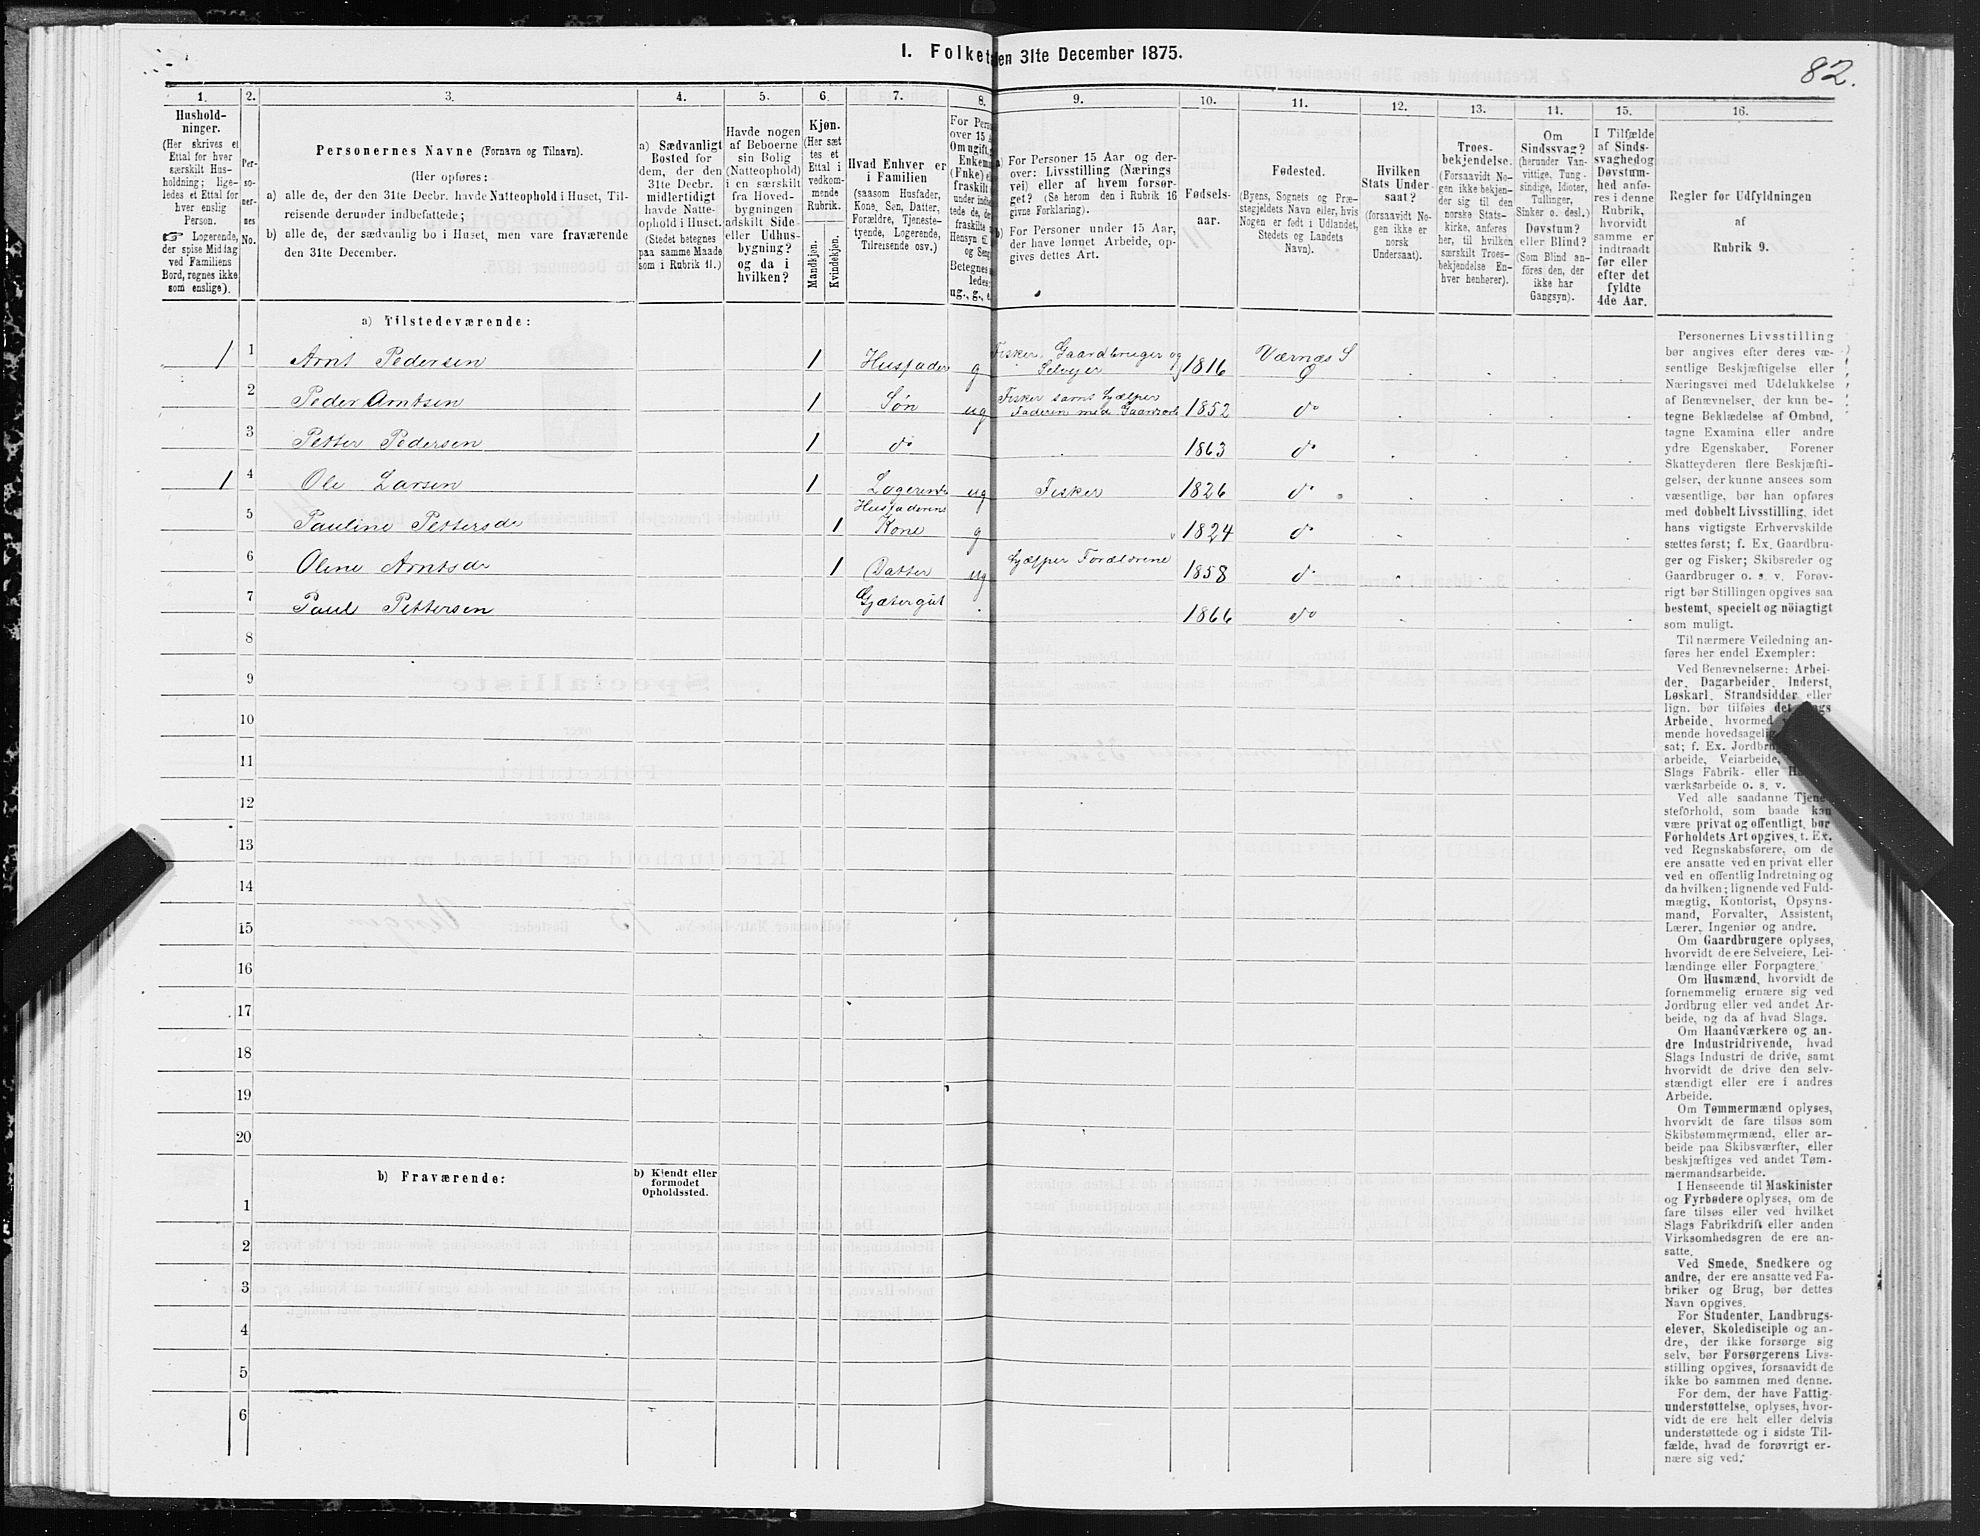 I. Folket en 31te December 1875.
82.
1.
Hushold-
ninger.
(Her skrives et
Ettal for hver
særskilt Hus-
holdning; lige-
ledes et Ettal for
hver enslig
Person.
☞ Logerende,
der spise Middag
ved Familiens
Bord, regnes ikke
som enslige).
2.
Per-
so-
ner-
nes
No.
3.
Personernes Navne (Fornavn og Tilnavn).
(Her opføres:
a) alle de, der den 31te Decbr. havde Natteophold i Huset, Til-
reisende derunder indbefattede;
b) alle de, der sædvanlig bo i Huset, men vare fraværende
den 31te December.
4.
a) Sædvanligt
Bosted for
dem, der den
31te Decbr.
midlertidigt
havde Natte-
ophold i Huset.
(Stedet betegnes
paa samme Maade
som i Rubrik 11.)
5.
Havde nogen
af Beboerne
sin Bolig
(Natteophold)
i en særskilt
fra Hoved-
bygningen
adskilt Side-
eller Udhus-
bygning?
og da i
hvilken?
6.
Kjøn.
(Her sæt
tes et
Ettal i
vedkom-
mende
Rubrik.
Mandkjøn.
Kvindekjøn.
7.
Hvad Enhver er
i Familien
(saasom Husfader,
Kone, Søn, Datter,
Forældre, Tjeneste-
tyende, Logerende,
Tilreisende osv.)
8.
For Pers
over 15 A
Om ugift,
Enkem
(Fnke) e
fraskilt
under indb
tede de, de
fraskilte
Hensyn til
og Seng
Betegnes
ledes:
ug., g., e.
9.
a) For Personer 15 Aar og der-
over: Livsstilling (Nærings
vei) eller af hvem forsør-
get? (Se herom den i Rubrik 16
givne Forklaring).
b) For Personer under 15 Aar,
der have lønnet Arbeide, op-
gives dettes Art.
10.
Fødsels-
aar.
11.
Fødested.
(Byens, Sognets og Præ-
stegjeldets Navn eller, hvis
Nogen er født i Udlandet,
Stedets og Landets
Navn).
12.
Hvilken
Stats Under-
saat?
(forsaavidt No-
gen ikke er
norsk
Undersaat).
13.
Troes-
bekjendelse.
(Forsaavidt No-
gen ikke bekjen-
der sig til den
norske Stats-
kirke, anføres
her, til hvilken
særskilt Troes-
bekjendelse En-
hver henhører).
14.
Om
Sindssvag?
(herunder Van-
vittige, Tung-
sindige, Idioter,
Tullinger,
Sinker o. desl.)
Døvstum?
eller Blind?
(Som Blind an-
føres den, der
ikke har
Gangsyn).
15.
I Tilfælde
af Sinds-
svaghedog
Døvstum-
hed anfø-
res i denne
Rubrik,
hvorvidt
samme er
indtraadt
før eller
efter det
fyldte
4de Aar.
16.
Regler for Udfyldningen
af
Rubrik 9.
a) Tilstedeværende:
1 1 Arnt Pedersen 1 Husfader g Fisker, Gaardbruger og Selvejer 1816 Værnæs S Ø
2 Peder Arntsen 1 Søn ug Fisker samt hjælper Faderen med Gaardsarb 1852 do
3 Petter Pedersen 1 do 1863 do
1 4 Ole Larsen 1 Logerende ug Fisker 1826 do
5 Pauline Pettersdr 1 Husfaderens Kone g 1824 do
6 Oline Arntsdr 1 Datter ug hjælper Forældrene 1858 do
7 Paul Pettersen Gjætergut 1866 do
8
9
10
11
12
13
14
15
16
17
18
19
20
b) Fraværende:
b) Kjendt eller
formodet
Opholdssted.
1
2
3
4
5
6
Personernes Livsstilling
bør angives efter deres væ-
sentlige Beskjæftigelse eller
Næringsvei med Udelukkelse
af Benævnelser, der kun be-
tegne Beklædelse af Ombud,
tagne Examina eller andre
ydre Egenskaber. Forener
Skatteyderen flere Beskjæfti-
gelser, der kunne ansees som
væsentlige, bør han opføres
med dobbelt Livsstilling, idet
hans vigtigste Erhvervskilde
sættes først; f. Ex. Gaardbru-
ger og Fisker; Skibsreder og
Gaardbruger o. s. v. Forøv-
rigt bør Stillingen opgives saa
bestemt, specielt og nöiagtigt
som muligt.
Til nærmere Veiledning an-
føres her endel Exempler:
Ved Benævnelserne: Arbei-
der, Dagarbeider, Inderst,
Løskarl, Strandsidder eller
lign. bør tilføies det
Arbeide, hvormed
mende hovedsagelig
sat; f. Ex. Jordbru
arbeide, Veiarbeide,
Slags Fabrik- eller
værksarbeide o. s. v.
Ved alle saadanne Tjene-
steforhold, som baade kan
være privat og offentligt, bør
Forholdets Art opgives, t. Ex.
ved Regnskabsførere, om de
ere ansatte ved en privat eller
ved en offentlig Indretning og
da hvilken; lignende ved Fuld-
mægtig, Kontorist, Opsyns-
mand, Forvalter, Assistent,
Lærer, Ingeniør og andre.
Om Gaardbrugere oplyses,
hvorvidt de ere Selveiere, Lei-
lændinge eller Forpagtere.
Om Husmænd, hvorvidt de
fornemmelig ernære sig ved
Jordbrug eller ved andet Ar-
beide, og da af hvad Slags.
Om Haandværkere og an-
dre Industridrivende, hvad
Slags Industri de drive, samt
hvorvidt de drive den selv-
stændigt eller ere i andres
Arbeide.
Om Tømmermænd oplyses,
hvorvidt de fare tilsøs som
Skibstømmermænd, eller ar-
beide paa Skibsværfter, eller
beskjæftiges ved andet Tøm-
mermandsarbeide.
I Henseende til Maskinister
og Fyrbødere oplyses, om de
fare tilsøs eller ved hvilket
Slags Fabrikdrift eller anden
Virksomhedsgren de ere an-
satte.
Ved Smede, Snedkere og
andre, der ere ansatte ved Fa-
briker og Brug, bør dettes
Navn opgives.
For Studenter, Landbrugs-
elever, Skoledisciple og an-
dre, der ikke forsørge sig
selv, bør Forsørgerens Livs-
stilling opgives, forsaavidt de
ikke bo sammen med denne.
For dem, der have Fattig-
understøttelse, oplyses, hvor-
vidt de ere helt eller delvis
understøttede og i sidste Til-
fælde, hvad de forøvrigt er-
nære sig ved.